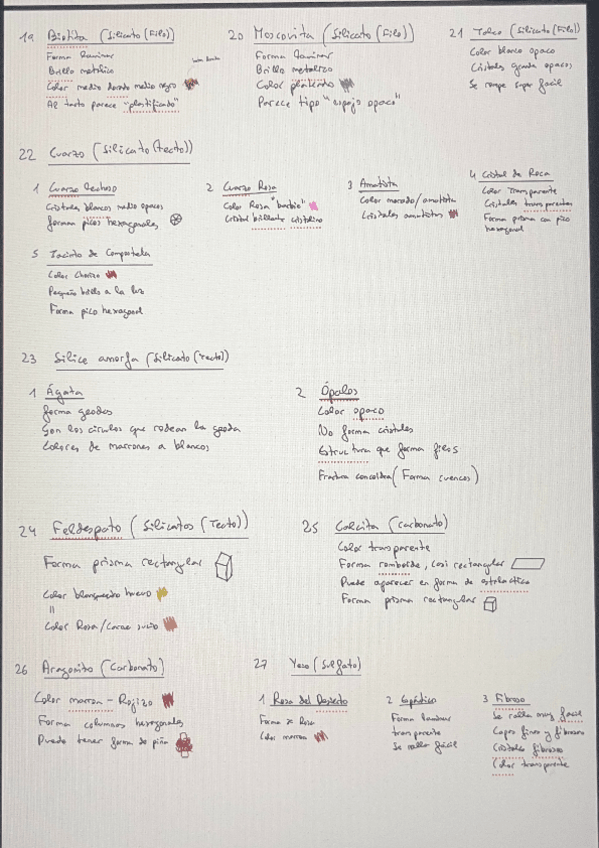 19 Biotita (Silicato (Filo))
Forma laminar
Brillo metálico
Color medio dorado medio negro
Al tacto parece "plastificado"
20 Moscovita (Silicato (Filo))
Forma laminar
Brillo metalizo
Color plateado
Parece tipo "espejo opaco"
21 Talco (Silicato (Filo))
Color blanco opaco
Cristales grandes opacos
Se rompe super facil
22 Cuarzo (Silicato (tecto))
1 Cuarzo Lechoso
Cristales blancos medio opacos
forma picos hexagonales
2 Cuarzo Rosa
Color Rosa "barbie"
Cristal brillante cristalino
3 Amatista
Color morado/amatista
Cristales amatistas
4 Cristal de Roca
Color Transparente
Cristales transparentes
Forma prisma con pico
hexagonal
5 Jacinto de Compostela
Color Chorizo
Pequeño brillo a la luz
Forma pico hexagonal
23 Silice amorfa (Silicato (Tecto))
1 Ágata
forma geodas
Son los circulos que rodean la geoda
Colores de marrones a blancos
2 Ópalos
Color opaco
No forma cristales
Estructura que forma filos
Fractura concoidea (Forma cuencos)
24 Feldespato (Silicatos (Tecto))
Forma prisma rectangular
Color blanquecino huevo
Color Rosa/Carne sucio
25 Calcita (Carbonato)
Color transparente
Forma romboide, casi rectangular
Puede aparecer en forma de estalactita
Forma prisma rectangular
26 Aragonito (Carbonato)
Color marron - Rojizo
Forma columnas hexagonales
Puede tener forma de piña
27 Yeso (Sulfato)
1 Rosa del Desierto
Forma de Rosa
Color marron
2 Espéculico
Forma laminar
transparente
Se ralla fácil
3 Fibroso
Se ralla muy facil
Capas finas y fibrosas
Cristales fibrosos
Color transparente